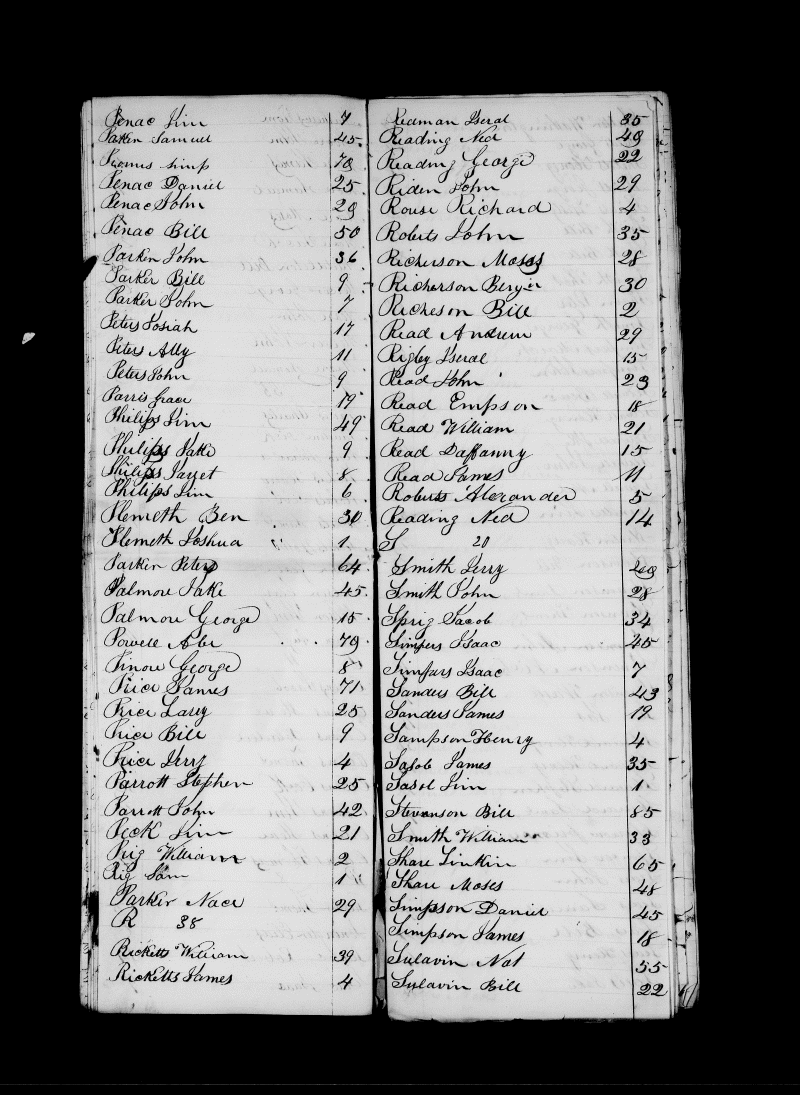 Penac Jim 7
Parker Samuel 45
78
Penac Daniel 25
Penac John 29
Penac Bill 50
Parker John 36
Parker Bill 9
Parker John 7
Peters Josiah 17
Peters Ally 11
Peters John 9
Parris Grace 19
Philips Jim 49
Philips Jake 9
Philips Jarret 8
Philips Jim 6
Plemeth Ben 30
Plemeth Joshua 1
Parker Peter 64
Palmore Jake 45
Palmore George 15
Powell Abe 79
Pinore George 8
Price James 71
Price Larry 25
Price Bill 9
Price Jerry 4
Parrott Stephen 25
Parrott John 42
Peck Jim 21
Pig William 2
Pig Sam 1
Parker Nace 29
R 38
Ricketts William 39
Ricketts James 4
Redman Iseral 85
Reading Ned 49
Reading George 22
Riden John 29
Rouse Richard 4
Roberts John 35
Richerson Moses 28
Richerson 30
Richeson Bill 2
Read Andrew 29
Rigley Iseral 15
Read John 23
Read Empson 18
Read William 21
Read Daffanny 15
Read James 11
Roberts Alexander 5
Reading Ned 14
S 20
Smith Jerry
Smith John 28
Sprig Jacob 34
Simpers Isaac 45
Simpars Isaac 7
Sanders Bill 43
Sanders James 19
Sampson Henry 4
Sasob James 35
Sasol Jim 1
Stevenson Bill 85
Smith William 33
Share Linkin 65
Share Moses 48
Simpson Daniel 45
Simpson James 18
Sulavin Nat 55
Sulavin Bill 22